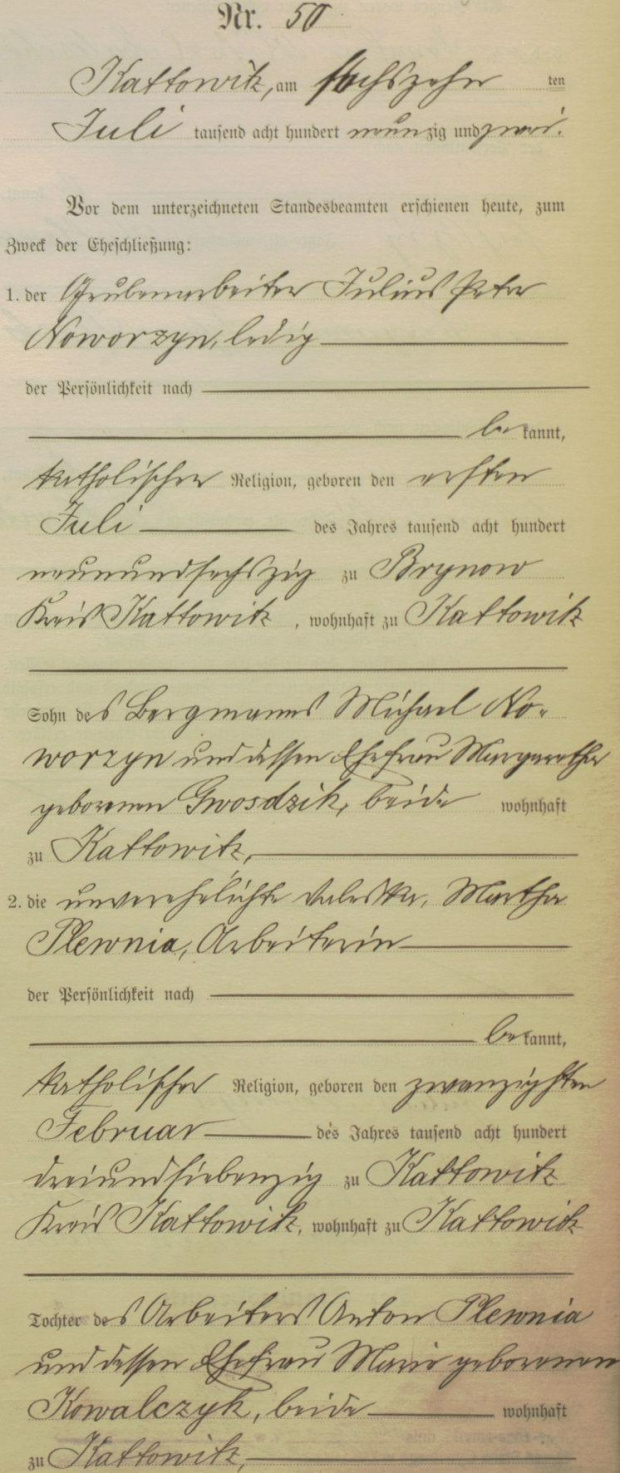 Nr. 50
Kattowitz, am sechszehn ten
Juli tausend acht hundert neunzig und zwei.
Vor dem unterzeichneten Standesbeamten erschienen heute, zum
Zweck der Eheschließung:
1. der Grubenarbeiter Julius Peter
Noworzyn, ledig
der Persönlichkeit nach
be kannt,
katholischer Religion, geboren den ersten
Juli des Jahres tausend acht hundert
neunundsechszig zu Brynow
Kreis Kattowitz, wohnhaft zu Kattowitz
Sohn des Bergmanns Michael No-
worzyn und dessen Ehefrau Margarethe
geborenen Gwosdzik, beide wohnhaft
zu Kattowitz,
2. die unverehelichte Valeska, Martha
Plewnia, Arbeiterin
der Persönlichkeit nach
be kannt,
katholischer Religion, geboren den zwanzigsten
Februar des Jahres tausend acht hundert
dreiundsiebenzig zu Kattowitz
Kreis Kattowitz, wohnhaft zu Kattowitz
Tochter des Arbeiters Anton Plewnia
und dessen Ehefrau Marie geborenen
Kowalczyk, beide wohnhaft
zu Kattowitz,